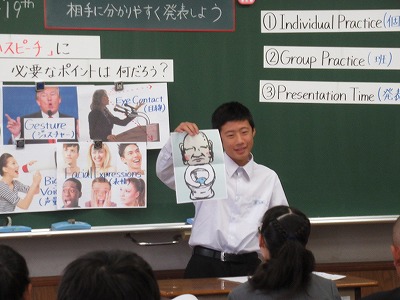 19th
相手に分かりやすく発表しよう
スピーチ」に
必要なポイントは 何だろう?
① Individual Practice (個
② Group Practice (班)
③ Presentation Time (発表
Gesture
(ジェスチャー)
Eye Contact
Facial Expressions
(表情)
Big
Voice
(声量